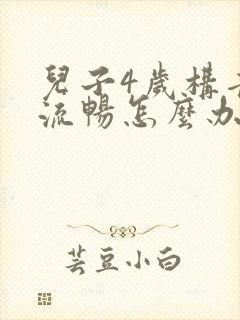 兒子4歲構
流暢怎麼办
芸豆小白